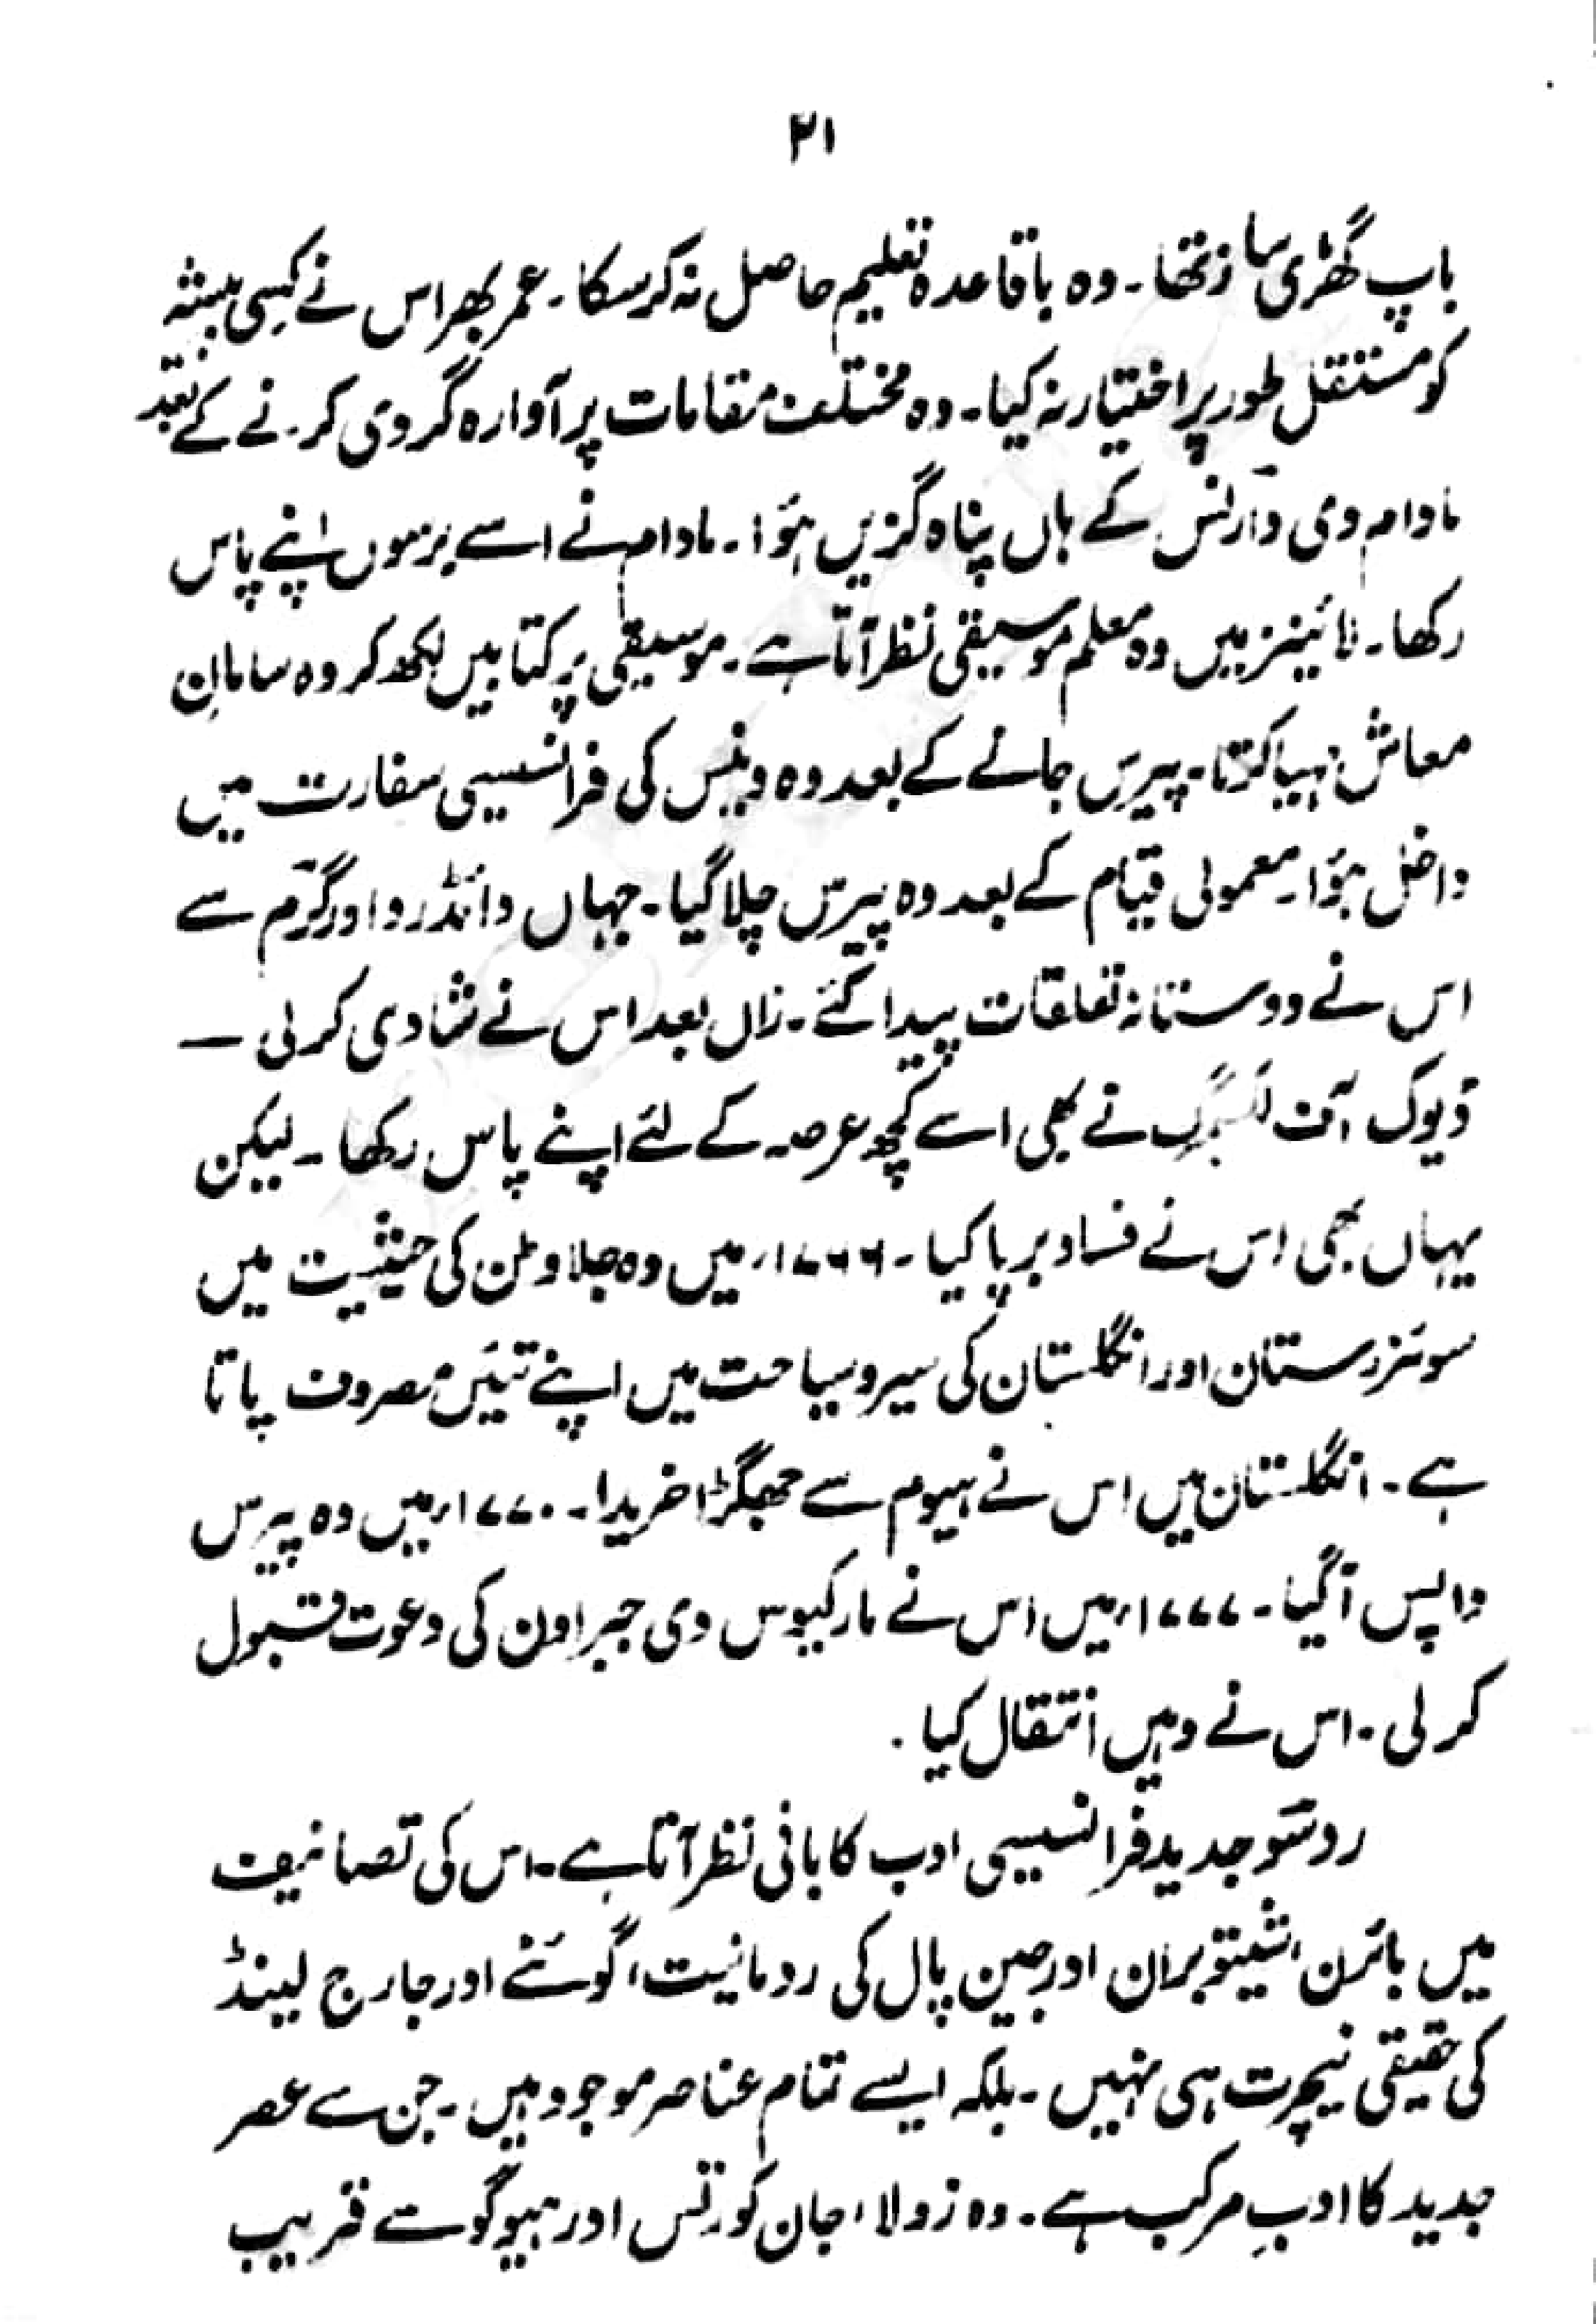 ۲۱
باپ گھڑی ساز تھا۔ وہ باقاعدہ تعلیم حاصل نہ کرسکا۔ عمر بھر اس نے کسی پیشہ
کو مستقل طور پر اختیار نہ کیا۔ وہ مختلف مقامات پر آوارہ گردی کرنے کے بعد
مادام دی وارنس کے ہاں پناہ گزیں ہؤا۔ مادام نے اسے برسوں اپنے پاس
رکھا۔ نائینز میں وہ معلم موسیقی نظر آتا ہے۔ موسیقی پر کتابیں لکھ کر وہ سامانِ
معاش مہیا کرتا۔ پیرس جانے کے بعد وہ وینس کی فرانسیسی سفارت میں
داخل ہؤا۔ معمولی قیام کے بعد وہ پیرس چلا گیا۔ جہاں دائڈرو اور گرم سے
اس نے دوستانہ تعلقات پیدا کئے۔ زاں بعد اس نے شادی کرلی —
ڈیوک آف لکسمبرگ نے بھی اسے کچھ عرصہ کے لئے اپنے پاس رکھا۔ لیکن
یہاں بھی اس نے فساد برپا کیا۔ ۱۷۶۶ء میں وہ جلاوطن کی حیثیت میں
سوئزرستان اور انگلستان کی سیر و سیاحت میں اپنے تئیں مصروف پاتا
ہے۔ انگلستان میں اس نے ہیوم سے جھگڑا خریدا۔ ۱۷۷۰ء میں وہ پیرس
واپس آگیا۔ ۱۷۷۷ء میں اس نے مارکیوس دی جبراون کی دعوت قبول
کرلی۔ اس نے وہیں انتقال کیا۔
روسو جدید فرانسیسی ادب کا بانی نظر آتا ہے۔ اس کی تصانیف
میں بائرن، شیتوبران اور جین پال کی رومانیت، گوئٹے اور جارج لینڈ
کی حقیقی نیچریت ہی نہیں۔ بلکہ ایسے تمام عناصر موجود ہیں۔ جن سے عصر
جدید کا ادبِ مرکب ہے۔ وہ زولا، جان کورتس اور ہیوگو سے قریب